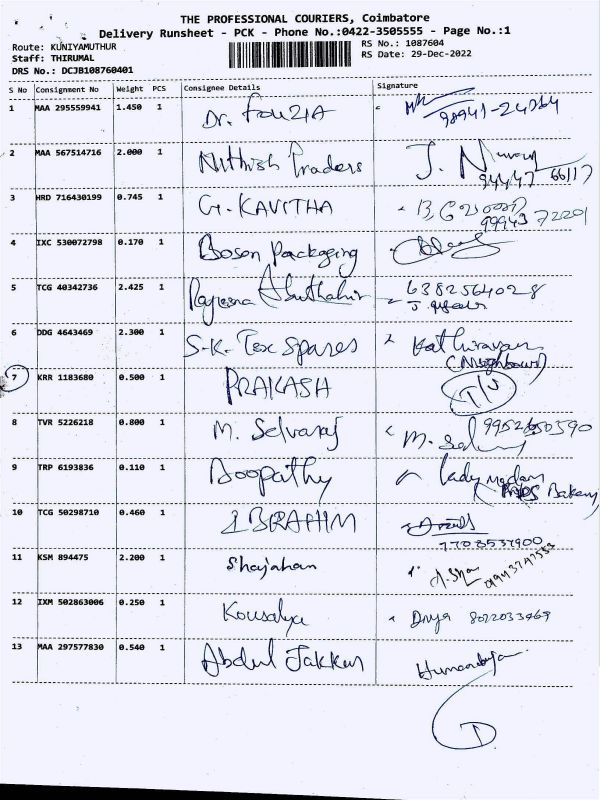 THE PROFESSIONAL COURIERS, Coimbatore
Delivery Runsheet - PCK - Phone No.:0422-3505555 - Page No.:1
Route: KUNIYAMUTHUR
RS No.: 1087604
Staff: THIRUMAL
RS Date: 29-Dec-2022
DRS No.: DCJB108760401
S No Consignment No Weight PCS Consignee Details Signature
1 MAA 295559941 1.450 1 Dr. Fouzia
2 MAA 567514716 2.000 1 Nithish Traders J.
94447 66117
3 HRD 716430199 0.745 1 G. KAVITHA
99943 72201
4 IXC 530072798 0.170 1 Boson Packaging
5 TCG 40342736 2.425 1 Abuthahir 6382564028
6 DDG 4643469 2.300 1 S-K. Tex Spares Kathiravan
(Neighbour)
7 KRR 1183680 0.500 1 PRAKASH
8 TVR 5226218 0.800 1 M. Selvaraj M. Sel
9 TRP 6193836 0.110 1 Boopathy Lady Madam
Bakery
10 TCG 50298710 0.460 1 IBRAHIM
7708537900
11 KSM 894475 2.200 1 Shajahan
12 IXM 502863006 0.250 1 Kousalya Divya 8022033469
13 MAA 297577830 0.540 1 Abdul Jakkur